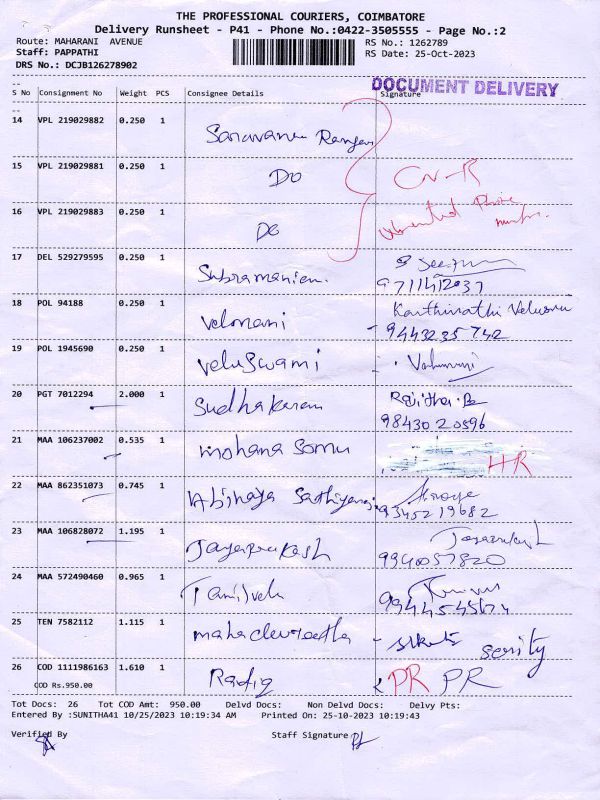 THE PROFESSIONAL COURIERS, COIMBATORE
Delivery Runsheet - P41 - Phone No.:0422-3505555 - Page No.:2
Route: MAHARANI AVENUE RS No.: 1262789
Staff: PAPPATHI RS Date: 25-Oct-2023
DRS No.: DCJB126278902
DOCUMENT DELIVERY
S No Consignment No Weight PCS Consignee Details Signature
14 VPL 219029882 0.250 1
15 VPL 219029881 0.250 1 Do
16 VPL 219029883 0.250 1 Do
17 DEL 529279595 0.250 1 Subramaniem.
9711412037
18 POL 94188 0.250 1 Velmani Karthinathi Velusru
9443235742
19 POL 1945690 0.250 1 Veluswami
20 PGT 7012294 2.000 1 Sudhakaram Rajitha.
98430 20596
21 MAA 106237002 0.535 1 mohana Somu HR
22 MAA 862351073 0.745 1 Abinaya
9345219682
23 MAA 106828072 1.195 1 Jayaprakash
9940057820
24 MAA 572490460 0.965 1 Tamilvelu
25 TEN 7582112 1.115 1
26 COD 1111986163 1.610 1 Radiq PR PR
COD Rs.950.00
Tot Docs: 26 Tot COD Amt: 950.00 Delvd Docs: Non Delvd Docs: Delvy Pts:
Entered By :SUNITHA41 10/25/2023 10:19:34 AM Printed On: 25-10-2023 10:19:43
Verified By Staff Signature